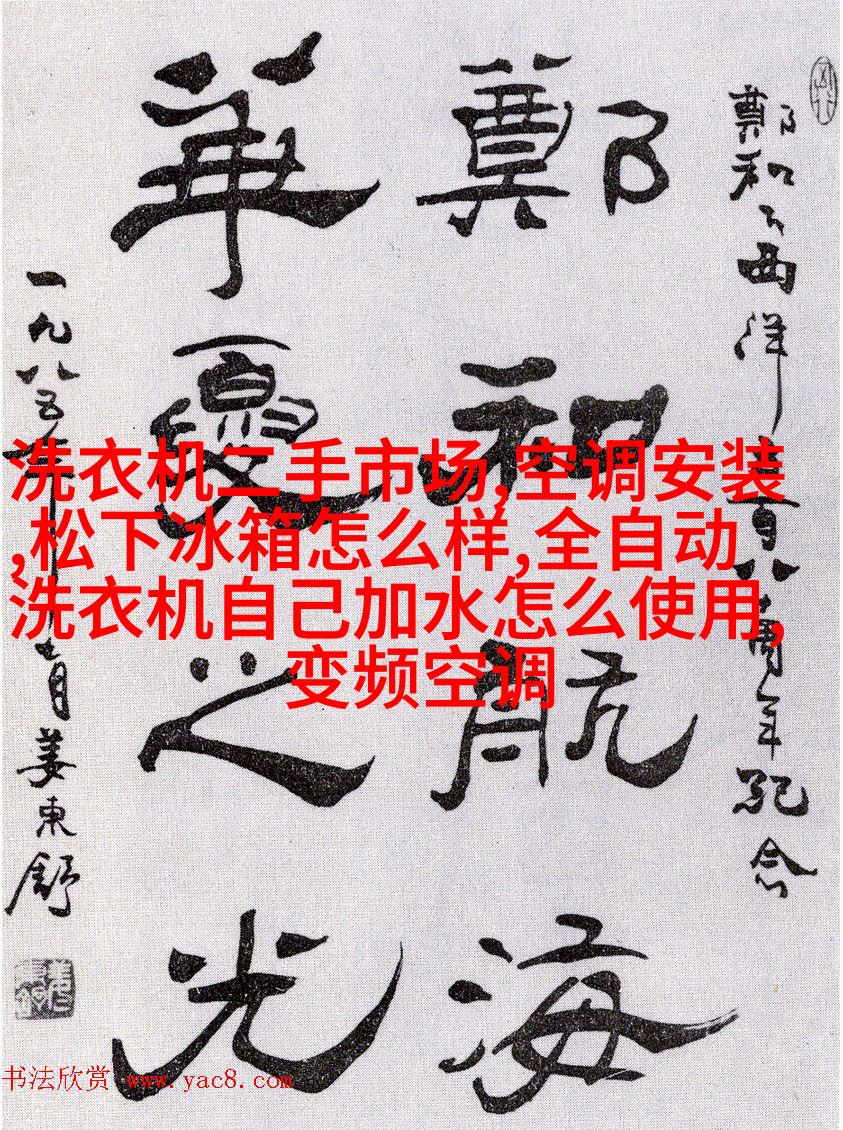 鄭和下西洋五百八十周年紀念
鄭和航海
華夏之光
一九八五年 月姜東舒
洗衣机二手市场,空调安装
,松下冰箱怎么样,全自动
洗衣机自己加水怎么使用,
变频空调
书法欣赏 www.yac8.com